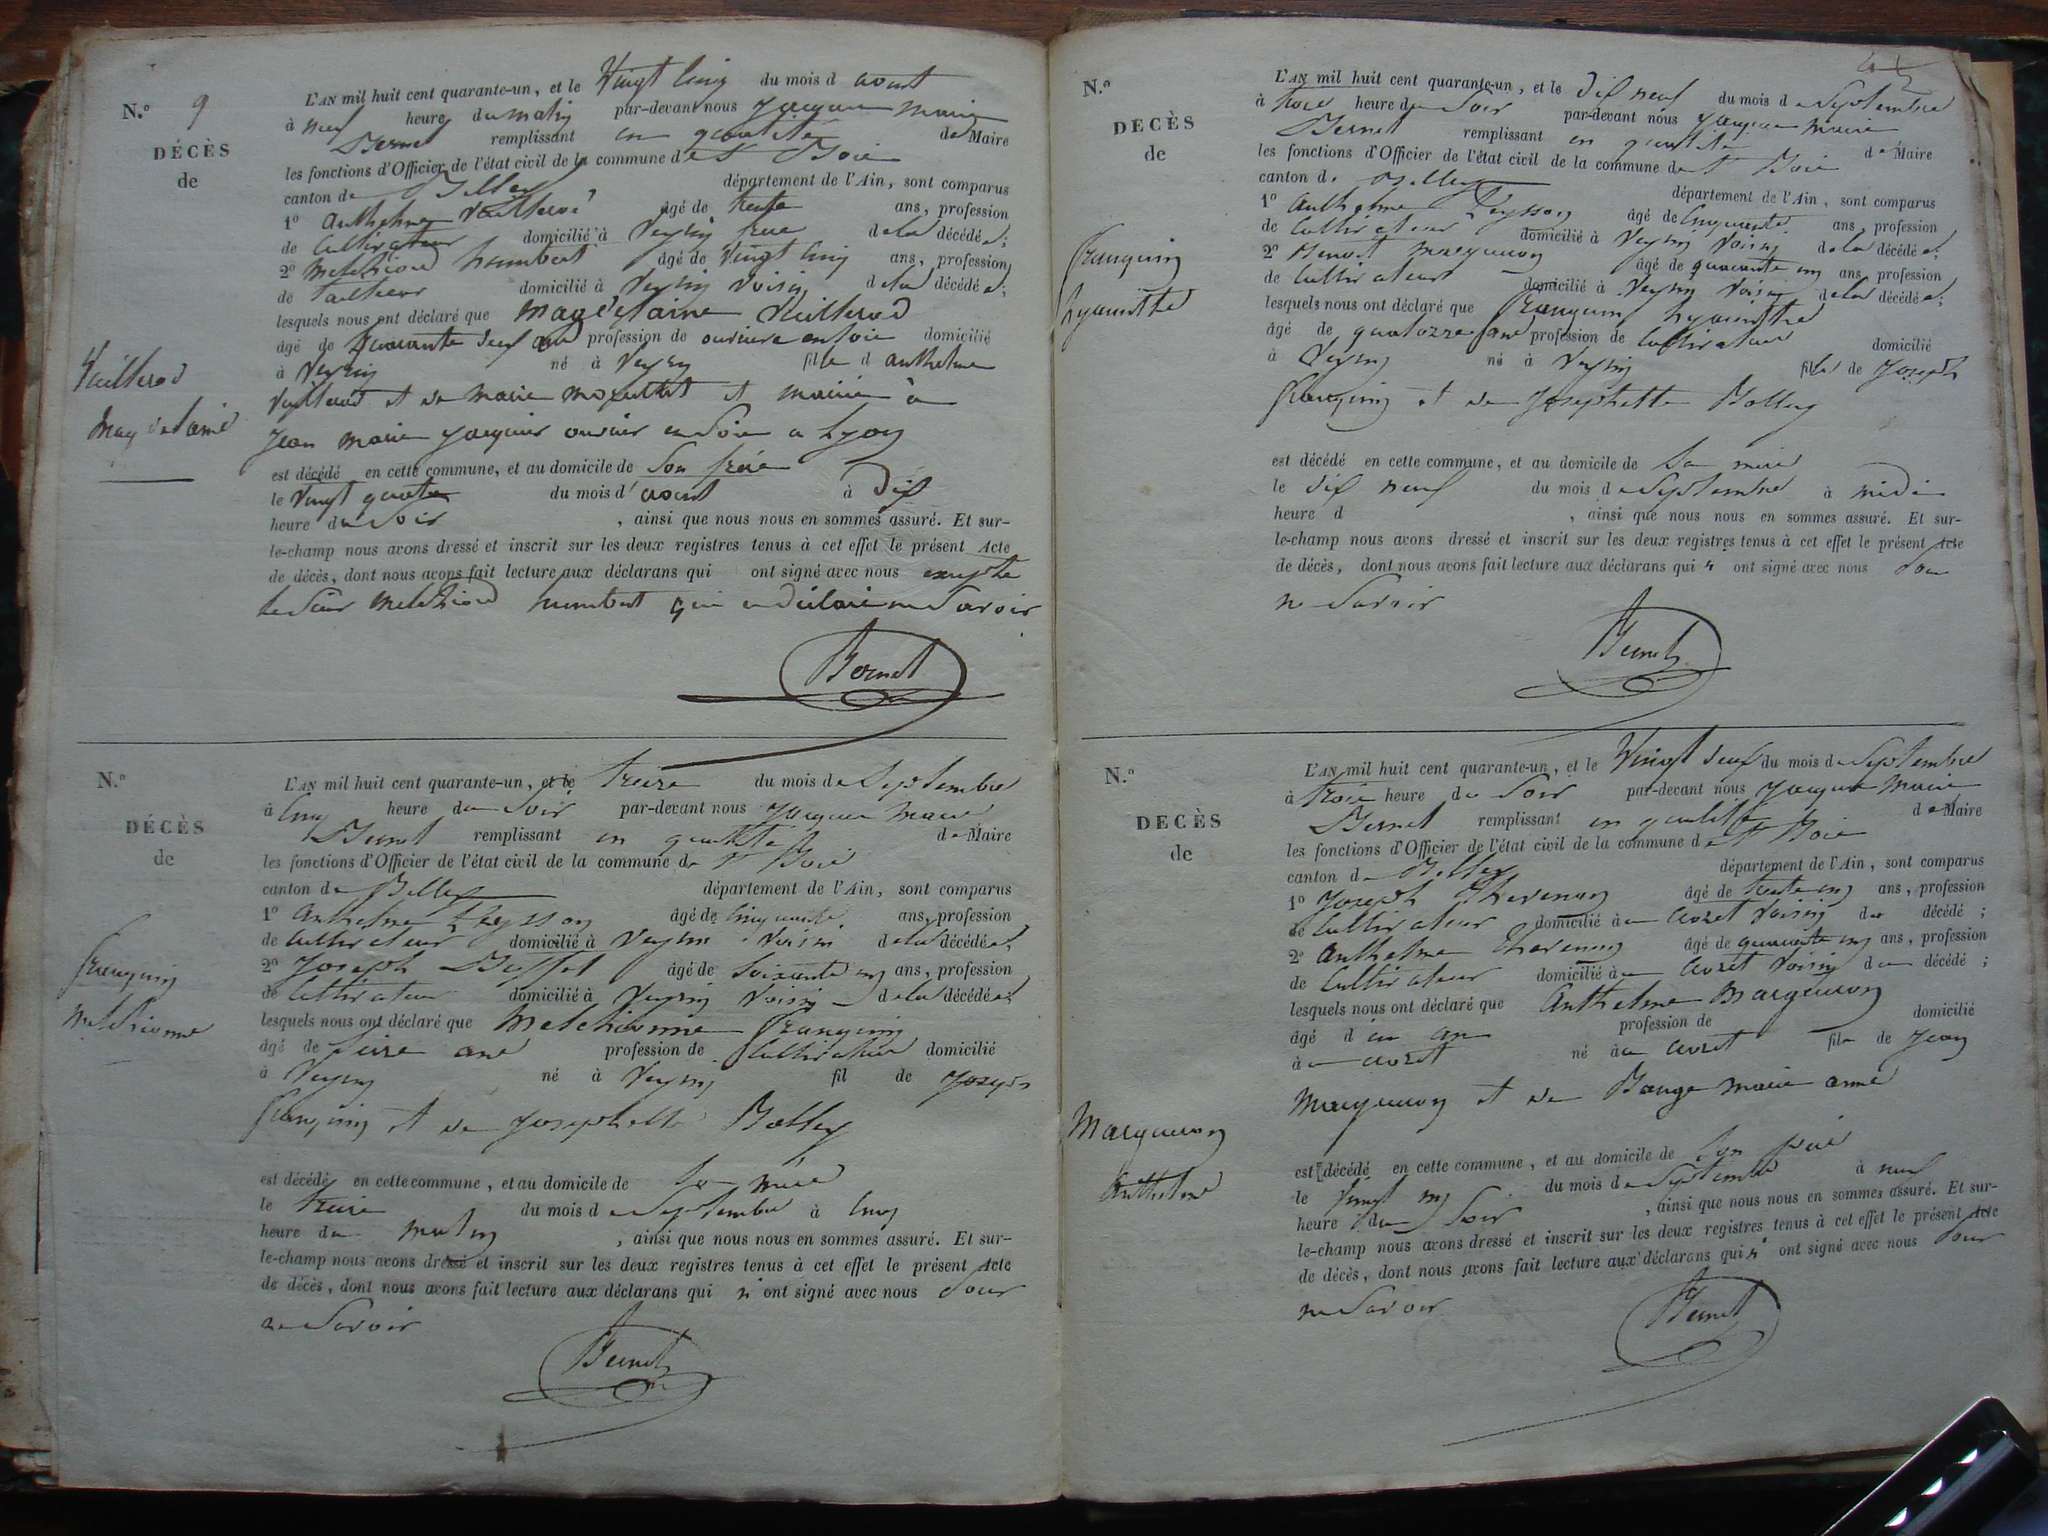 N.° 9
DÉCÈS
de
Vuillerod
magdelaine
L'AN mil huit cent quarante-un, et le Vingt cinq du mois d aout
à neuf heure du matin par-devant nous jacques marie
Bernet remplissant en qualité de Maire
les fonctions d'Officier de l'état civil de la commune de St Bois
canton de Belley département de l'Ain, sont comparus
1° anthelme Vuillerod âgé de trente ans, profession
de Cultivateur domicilié à Veyrin frere de la décédée;
2° melchiord humbert âgé de Vingt cinq ans, profession
de tailleur domicilié à Veyrin Voisin de la décédée;
lesquels nous ont déclaré que magdelaine Vuillerod
âgé de quarante deux ans profession de ouvriere en soie domicilié
à Veyrin né à Veyrin fille d anthelme
Vuillerod et de marie et mariée à
jean marie jacquier ouvrier en Soie a Lyon
est décédé en cette commune, et au domicile de Son frére
le Vingt quatre du mois d'aout à Dix
heure du Soir , ainsi que nous nous en sommes assuré. Et sur-
le-champ nous avons dressé et inscrit sur les deux registres tenus à cet effet le présent Acte
de décès, dont nous avons fait lecture aux déclarans qui ont signé avec nous excepte
le Sieur melchiord humbert qui a déclaré ne Savoir
Bernet
N.°
DÉCÈS
de
franquin
melchionne
L'AN mil huit cent quarante-un, et le treize du mois de Septembre
à Cinq heure du Soir par-devant nous jacques marie
Bernet remplissant en qualité de Maire
les fonctions d'Officier de l'état civil de la commune de St Bois
canton de Belley département de l'Ain, sont comparus
1° anthelme Peysson âgé de Cinquante ans, profession
de Cultivateur domicilié à Veyrin Voisin de la décédée;
2° joseph Buffet âgé de Soixante un ans, profession
de Cultivateur domicilié à Veyrin Voisin de la décédée;
lesquels nous ont déclaré que melchionne franquin
âgé de Seize ans profession de Cultivateur domicilié
à Veyrin né à Veyrin fil de joseph
franquin et de josephette Bolley
est décédé en cette commune, et au domicile de Sa mére
le treize du mois de Septembre à Cinq
heure du matin , ainsi que nous nous en sommes assuré. Et sur-
le-champ nous avons dressé et inscrit sur les deux registres tenus à cet effet le présent Acte
de décès, dont nous avons fait lecture aux déclarans qui n ont signé avec nous pour
ne Savoir
Bernet
N.°
DECÈS
de
franquin
hyacinthe
L'AN mil huit cent quarante-un, et le dix neuf du mois de Septembre
à trois heure du Soir par-devant nous jacques marie
Bernet remplissant en qualité de Maire
les fonctions d'Officier de l'état civil de la commune de St Bois
canton de Belley département de l'Ain, sont comparus
1° anthelme Peysson âgé de Cinquante ans, profession
de Cultivateur domicilié à Veyrin Voisin de la décédée;
2° Benoit marqueron âgé de quarante un ans, profession
de Cultivateur domicilié à Veyrin Voisin de la décédée;
lesquels nous ont déclaré que franquin hyacinthe
âgé de quatorze ans profession de Cultivateur domicilié
à Veyrin né à Veyrin fils de joseph
franquin et de josephette Bolley
est décédé en cette commune, et au domicile de Sa mére
le dix neuf du mois de Septembre à midi
heure d , ainsi que nous nous en sommes assuré. Et sur-
le-champ nous avons dressé et inscrit sur les deux registres tenus à cet effet le présent Acte
de décès, dont nous avons fait lecture aux déclarans qui n ont signé avec nous pour
ne Savoir
Bernet
N.°
DECÈS
de
Marqueron
anthelme
L'AN mil huit cent quarante-un, et le Vingt deux du mois de Septembre
à trois heure du Soir par-devant nous jacques marie
Bernet remplissant en qualité de Maire
les fonctions d'Officier de l'état civil de la commune de St Bois
canton de Belley département de l'Ain, sont comparus
1° joseph thevenon âgé de trente cinq ans, profession
de Cultivateur domicilié à avret Voisin du décédé;
2° anthelme thevenon âgé de quarante cinq ans, profession
de Cultivateur domicilié à avret Voisin du décédé;
lesquels nous ont déclaré que Anthelme marqueron
âgé d un an profession de domicilié
à avret né à avret fils de jean
marqueron et de Bauge marie anne
est décédé en cette commune, et au domicile de Son pére
le Vingt un du mois de Septembre à neuf
heure du Soir , ainsi que nous nous en sommes assuré. Et sur-
le-champ nous avons dressé et inscrit sur les deux registres tenus à cet effet le présent Acte
de décès, dont nous avons fait lecture aux déclarans qui n ont signé avec nous pour
ne Savoir
Bernet